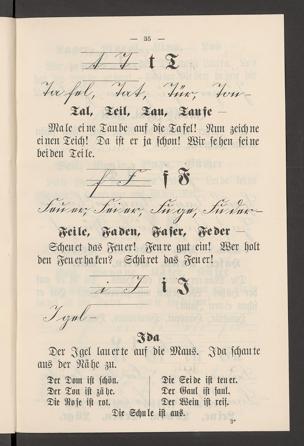 — 35 —
t T t T
Tafel, Tat, Tür, Ton —
Tal, Teil, Tau, Taufe —
Male eine Taube auf die Tafel! Nun zeichne
einen Teich! Da ist er ja schon! Wir sehen seine
beiden Teile.
f F f F
Feuer, Feier, Fuge, Fuder —
Feile, Faden, Faser, Feder —
Scheuet das Feuer! Feure gut ein! Wer holt
den Feuerhafen? Schüret das Feuer!
i I i I
Igel —
Ida
Der Igel lauerte auf die Maus. Ida schaute
aus der Nähe zu.
Der Dom ist schön.
Der Ton ist zähe.
Die Rose ist rot.
Die Seide ist teuer.
Der Gaul ist faul.
Der Wein ist reif.
Die Schule ist aus.
3*